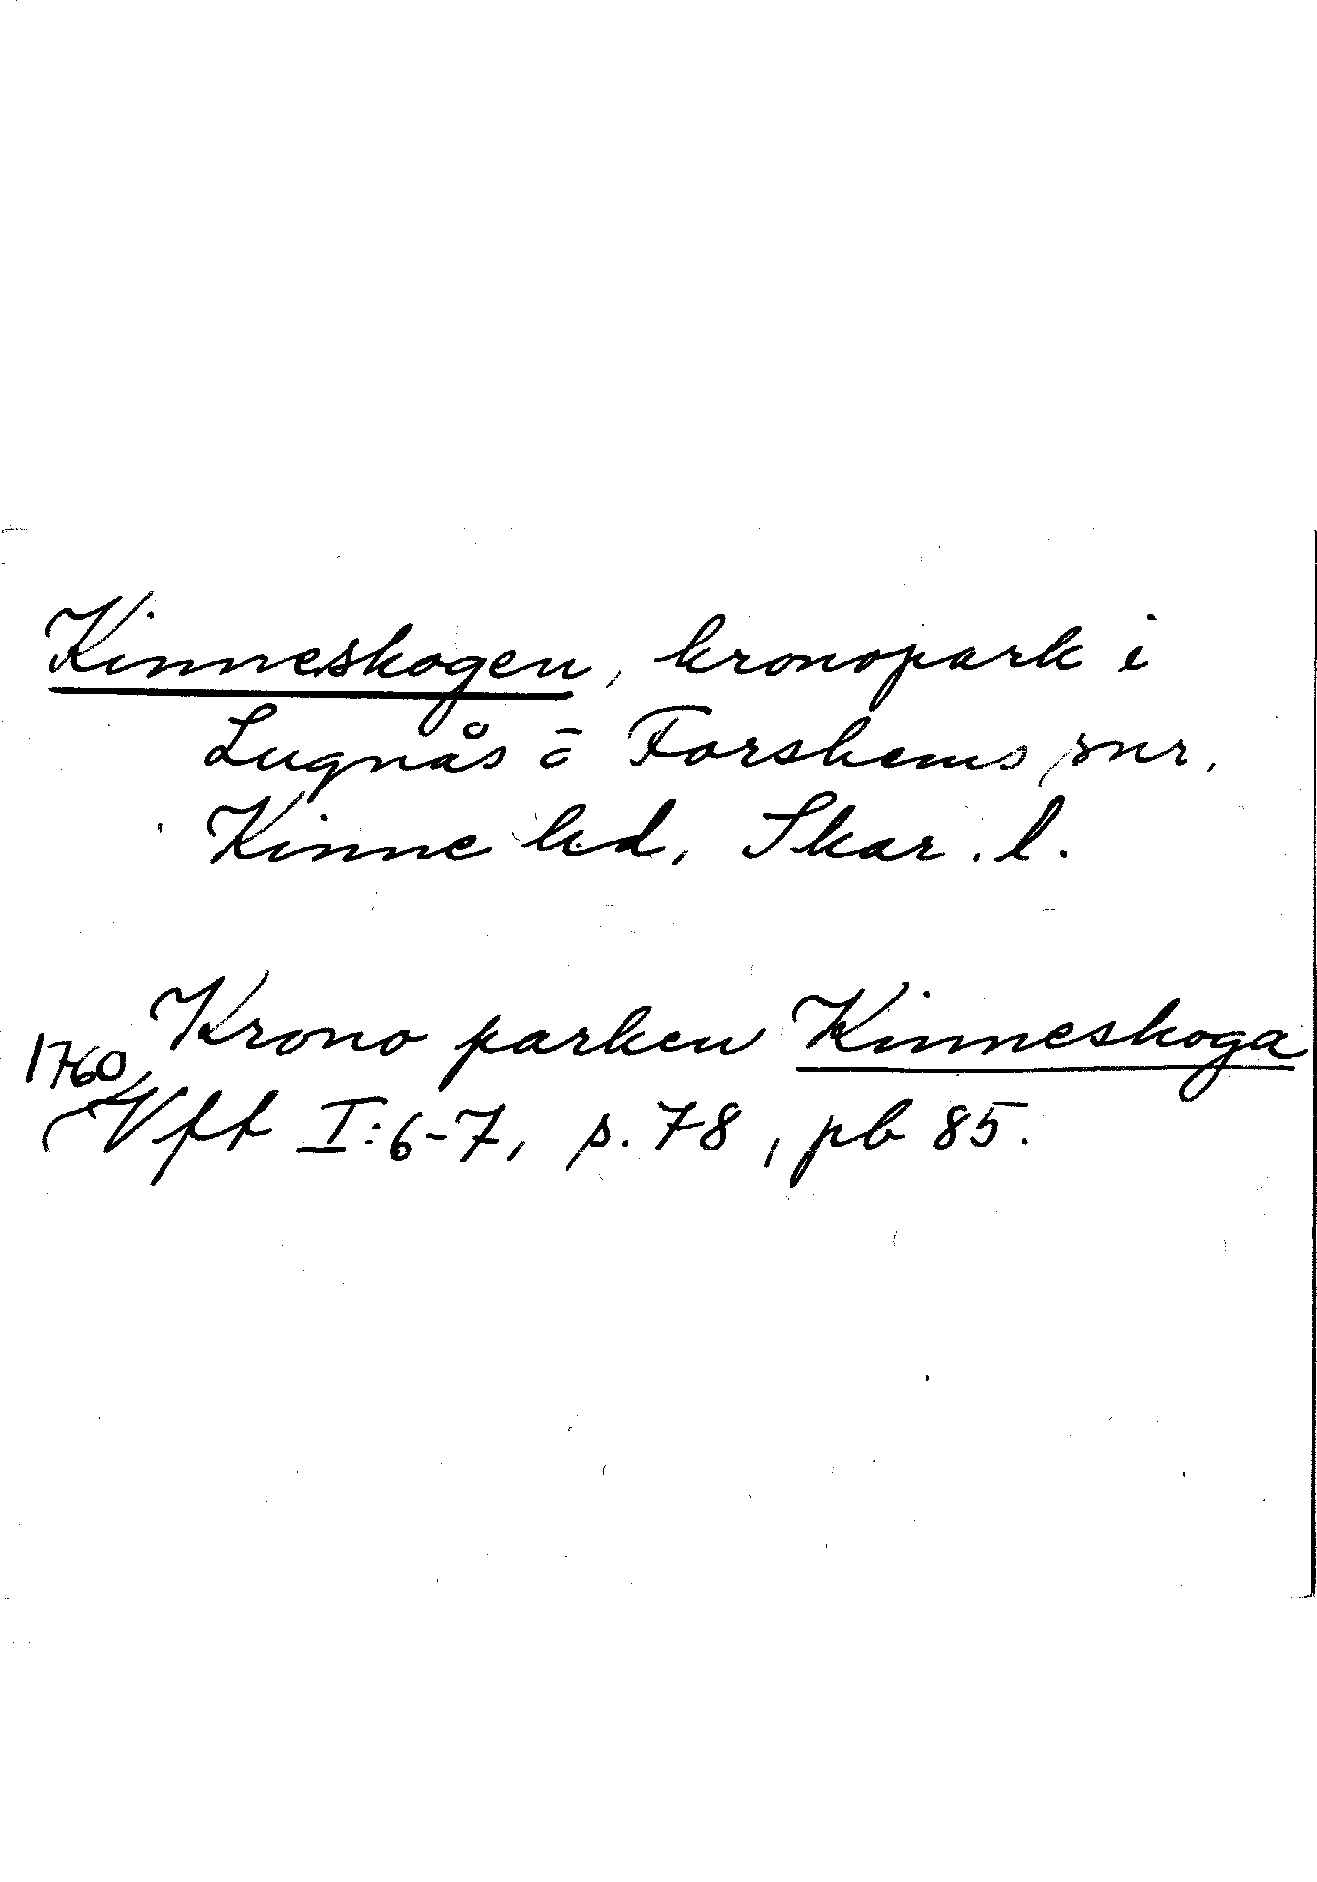 Kinneskogen, kronopark i
Lugnås o Forshems snr,
Kinne hd, Skar. l.
Krono parken Kinneskoga
1760
Vft I:6-7, s. 78, pb 85.